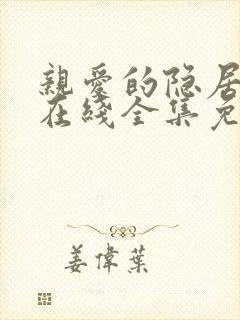 親愛的隐居
在綫全集免
姜偉葉